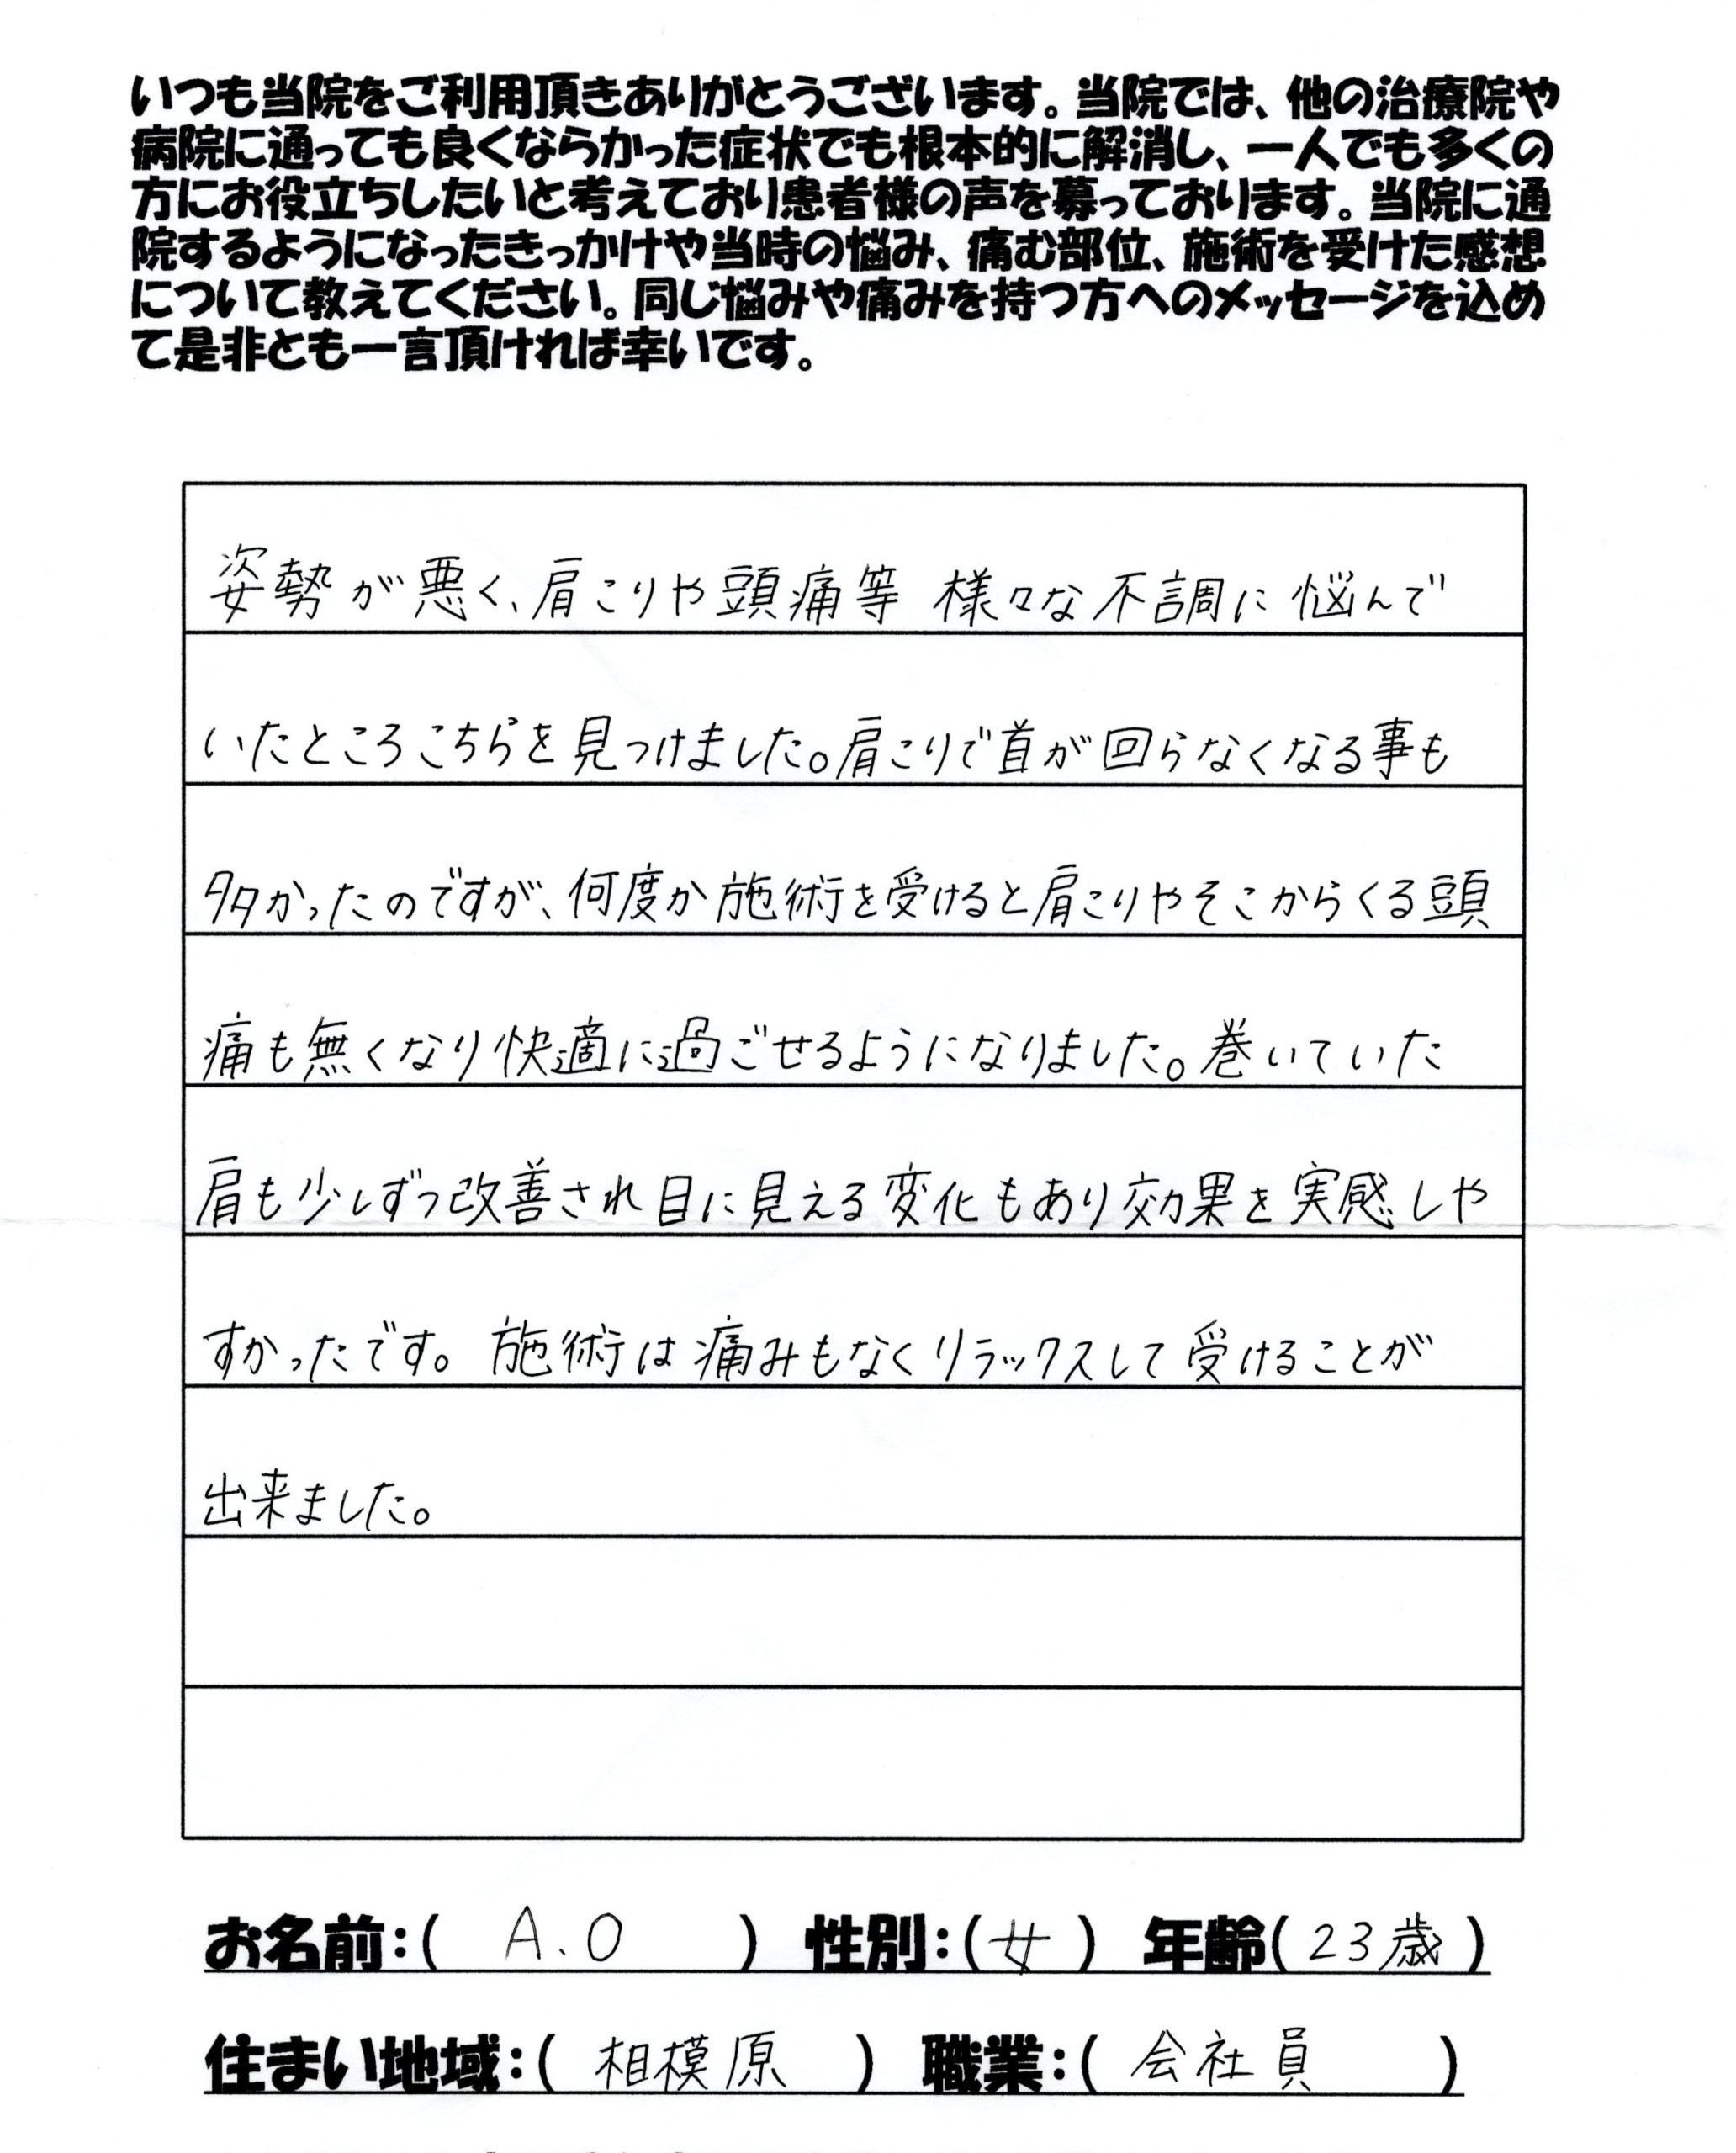 いつも当院をご利用頂きありがとうございます。当院では、他の治療院や
病院に通っても良くならかった症状でも根本的に解消し、一人でも多くの
方にお役立ちしたいと考えており患者様の声を募っております。当院に通
院するようになったきっかけや当時の悩み、痛む部位、施術を受けた感想
について教えてください。同じ悩みや痛みを持つ方へのメッセージを込め
て是非とも一言頂ければ幸いです。
姿勢が悪く、肩こりや頭痛等 様々な不調に悩んで
いたところこちらを見つけました。肩こりで首が回らなくなる事も
多かったのですが、何度か施術を受けると肩こりやそこからくる頭
痛も無くなり快適に過ごせるようになりました。巻いていた
肩も少しずつ改善され目に見える変化もあり効果を実感しや
すかったです。施術は痛みもなくリラックスして受けることが
出来ました。
お名前：( A.O ) 性別：( 女 ) 年齢( 23歳 )
住まい地域：( 相模原 ) 職業：( 会社員 )